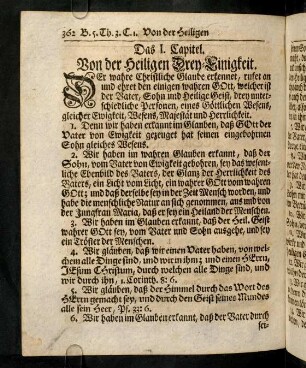 362 B. 5. Th. 3. C. 1. Von der Heiligen
Das I. Capitel.
Von der Heiligen Drey-Einigkeit.
DEr wahre Christliche Glaube erkennet, rufet an
und ehret den einigen wahren GOtt, welcher ist
der Vater, Sohn und Heilige Geist, drey unter-
schiedliche Personen, eines Göttlichen Wesens,
gleicher Ewigkeit, Wesens, Majestät und Herrlichkeit.
1. Denn wir haben erkannt im Glauben, daß GOtt der
Vater von Ewigkeit gezeuget hat seinen eingebohrnen
Sohn gleiches Wesens.
2. Wir haben im wahren Glauben erkannt, daß der
Sohn, vom Vater von Ewigkeit gebohren, sey das wesent-
liche Ebenbild des Vaters, der Glanz der Herrlichkeit des
Vaters, ein Licht vom Licht, ein wahrer GOtt vom wahren
GOtt; und daß derselbe sey in der Zeit Mensch worden, und
habe die menschliche Natur an sich genommen, aus und von
der Jungfrau Maria, daß er sey ein Heiland der Menschen.
3. Wir haben im Glauben erkannt, daß der Heil. Geist
wahrer GOtt sey, vom Vater und Sohn ausgehe, und sey
ein Tröster der Menschen.
4. Wir gläuben, daß wir einen Vater haben, von wel-
chem alle Dinge sind, und wir in ihm; und einen HErrn,
JEsum CHristum, durch welchen alle Dinge sind, und
wir durch ihn, 1. Corinth. 8: 6.
5. Wir gläuben, daß der Himmel durch das Wort des
HErrn gemacht sey, und durch den Geist seines Mundes
alle sein Heer, Ps. 33: 6.
6. Wir haben im Glauben erkannt, daß der Vater durch
sei-